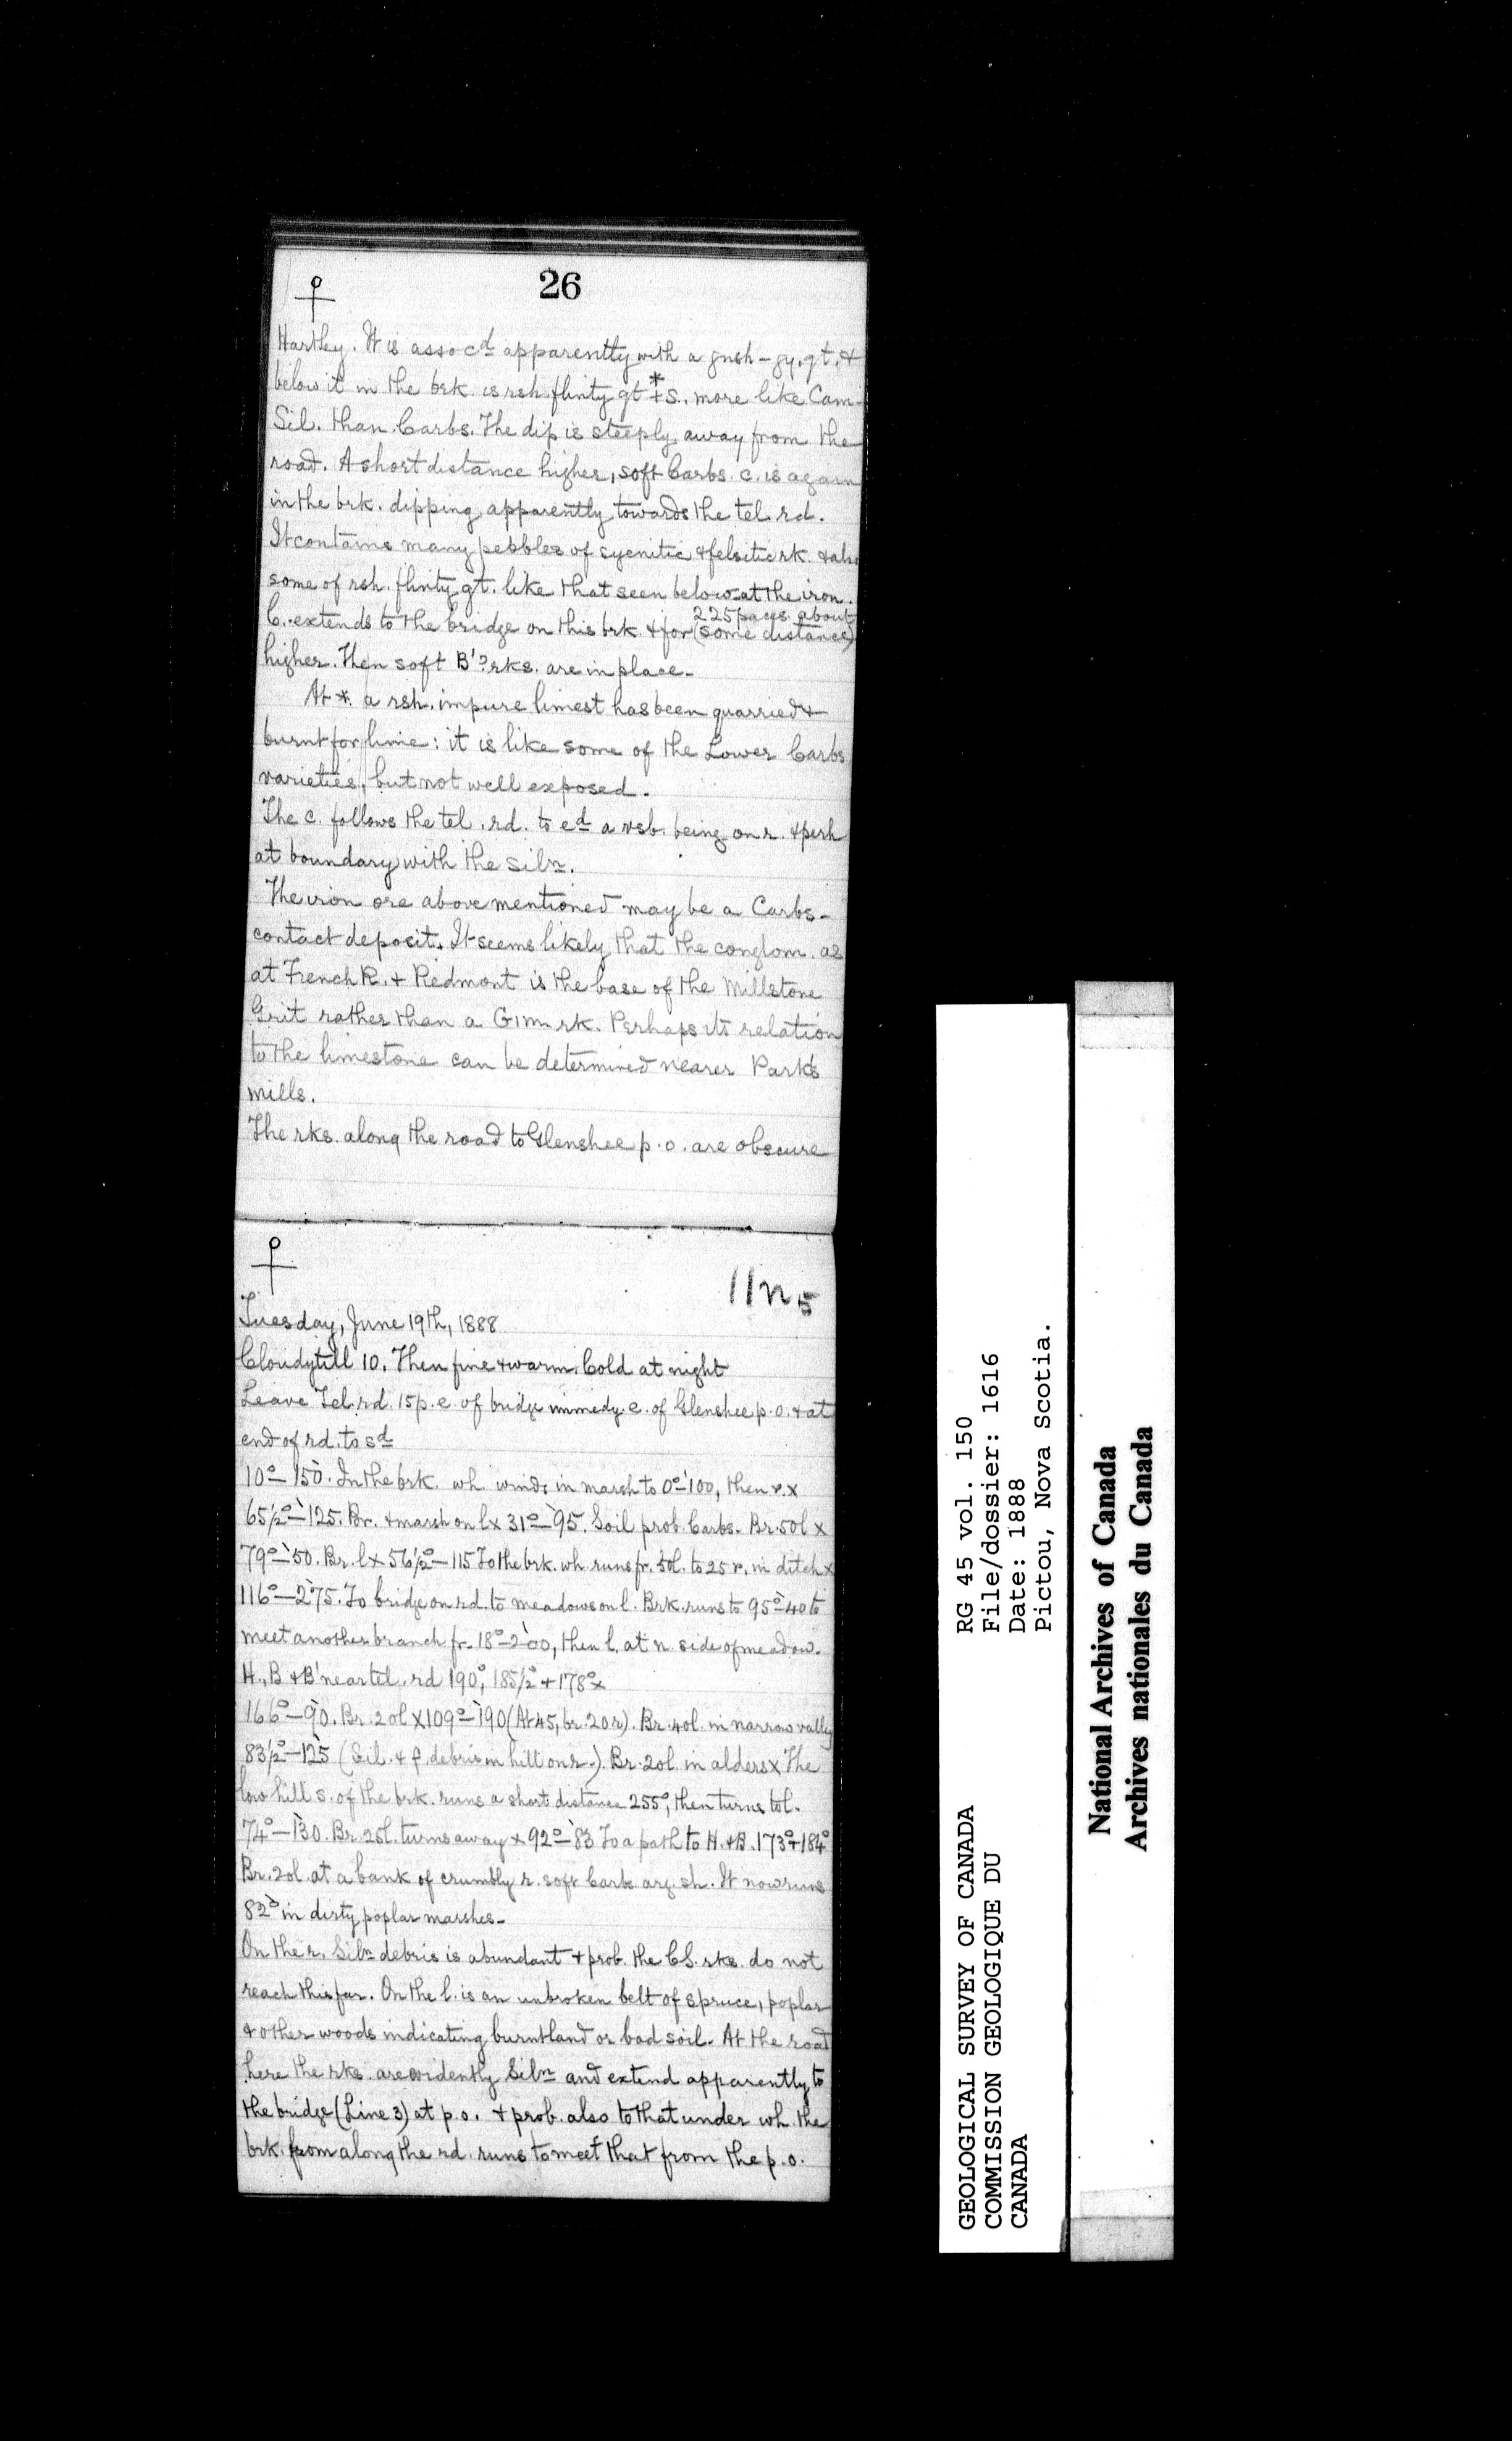 26
Hartley. It is assocd apparently with a gnsh-gy. qt. &
below it in the brk. is rsh. flinty qt * + s., more like Cam-
Sil. than Carbs. The dip is steeply away from the
road. A short distance higher, soft Carbs. c. is again
in the brk. dipping apparently towards the tel. rd.
It contains many pebbles of syenitic & felsitic rk. & also
some of rsh. flinty qt. like that seen below at the iron.
225 paces about
C. extends to the bridge on this brk. & for (some distance)
higher. Then soft B'? rks. are in place.
At * a rsh. impure limest has been quarried &
burnt for lime: it is like some of the Lower Carbs
varieties, but not well exposed.
The c. follows the tel. rd. to ed a vsb. being on r. & perh
at boundary with the siln.
The iron ore above mentioned may be a Carbs-
contact deposit. It seems likely that the conglom. as
at French R. & Piedmont is the base of the Millstone
Grit rather than a G1m rk. Perhaps its relation
to the limestone can be determined nearer Park's
mills.
The rks. along the road to Glenshee p.o. are obscure
11n5
Tuesday, June 19th, 1888
Cloudy till 10. Then fine & warm. Cold at night
Leave Tel. rd. 15 p. e. of bridge immedy. e. of Glenshee p.o. & at
end of rd. to sd
10°-150. In the brk. wh. winds in marsh to 0°-100, then r. x
65½°-125. Br. & marsh on l x 31°-95. Soil prob. Carbs. Br. 50l x
79°-50. Br. l x 56½°-115 To the brk. wh. runs fr. 50l. to 25 r. in ditch x
116°-275. To bridge on rd. to meadows on l. Brk. runs to 95°-40 to
meet another branch fr. 18°-200, then l. at n. side of meadow.
H., B & B' near tel. rd 190°, 185½° + 178° x
166°-90. Br. 20l x 109°-190 (At 45, br. 20 r). Br. 40l. in narrow valley
83½°-125 (Sil. & f. debris in hill on r.). Br. 20l. in alders x The
low hill s. of the brk. runs a short distance 255°, then turns to l.
74°-130. Br. 25l. turns away x 92°-83 To a path to H. & B. 173° + 184°
Br. 20l. at a bank of crumbly r. soft Carbs. arg. sh. It now runs
82° in dirty poplar marshes.
On the r. Siln debris is abundant & prob. the CS. rks. do not
reach this far. On the l. is an unbroken belt of spruce, poplar
& other woods indicating burntland or bad soil. At the road
here the rks. are evidently Siln and extend apparently to
the bridge (Line 3) at p.o. & prob. also to that under wh. the
brk. from along the rd. runs to meet that from the p.o.
GEOLOGICAL SURVEY OF CANADA
COMMISSION GEOLOGIQUE DU
CANADA
RG 45 vol. 150
File/dossier: 1616
Date: 1888
Pictou, Nova Scotia.
National Archives of Canada
Archives nationales du Canada